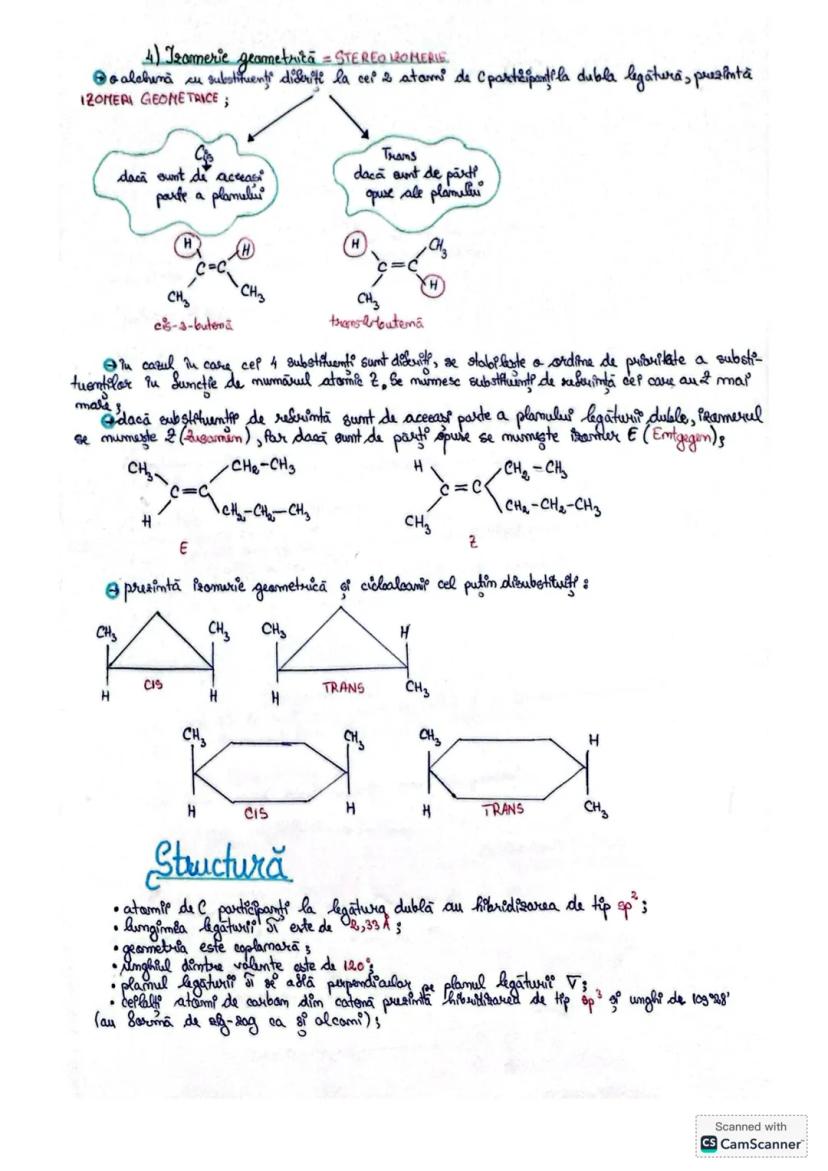 4) Izomerie geometrică = STEREOIZOMERIE
o alchenă cu substituenți diferiți la cei 2 atomi de C participanți la dubla legătură, prezintă
IZOMERI GEOMETRICE;
Cis
dacă sunt de aceeași
parte a planului
Trans
dacă sunt de părți
opuse ale planului
H H
C=C
CH3 CH3
cis-2-butenă
H CH3
C=C
CH3 H
trans-2-butenă
în cazul în care cei 4 substituenți sunt diferiți, se stabilește o ordine de prioritate a substi-
tuenților în funcție de numărul atomic Z. Se numesc substituenți de referință cei care au Z mai
mare;
dacă substituenții de referință sunt de aceeași parte a planului legăturii duble, izomerul
se numește Z (Zusamen), iar dacă sunt de părți opuse se numește izomer E (Entgegen);
CH3 CH2-CH3
C=C
H CH2-CH2-CH3
E
H CH2-CH3
C=C
CH3 CH2-CH2-CH3
Z
prezintă izomerie geometrică și cicloalcanii cel puțin disubstituiți:
CH3 CH3
CIS
H H
CH3 H
TRANS
H CH3
CH3 CH3
H CIS H
CH3 H
H TRANS CH3
Structură
• atomii de C participanți la legătura dublă au hibridizarea de tip sp²;
• lungimea legăturii π este de ,33 Å;
• geometria este coplanară;
• unghiul dintre valențe este de 120°;
• planul legăturii π se află perpendicular pe planul legăturii ∇;
• ceilalți atomi de carbon din catenă prezintă hibridizarea de tip sp³ și unghi de 109°28'
(au formă de zig-zag ca și alcanii);
Scanned with
CS CamScanner